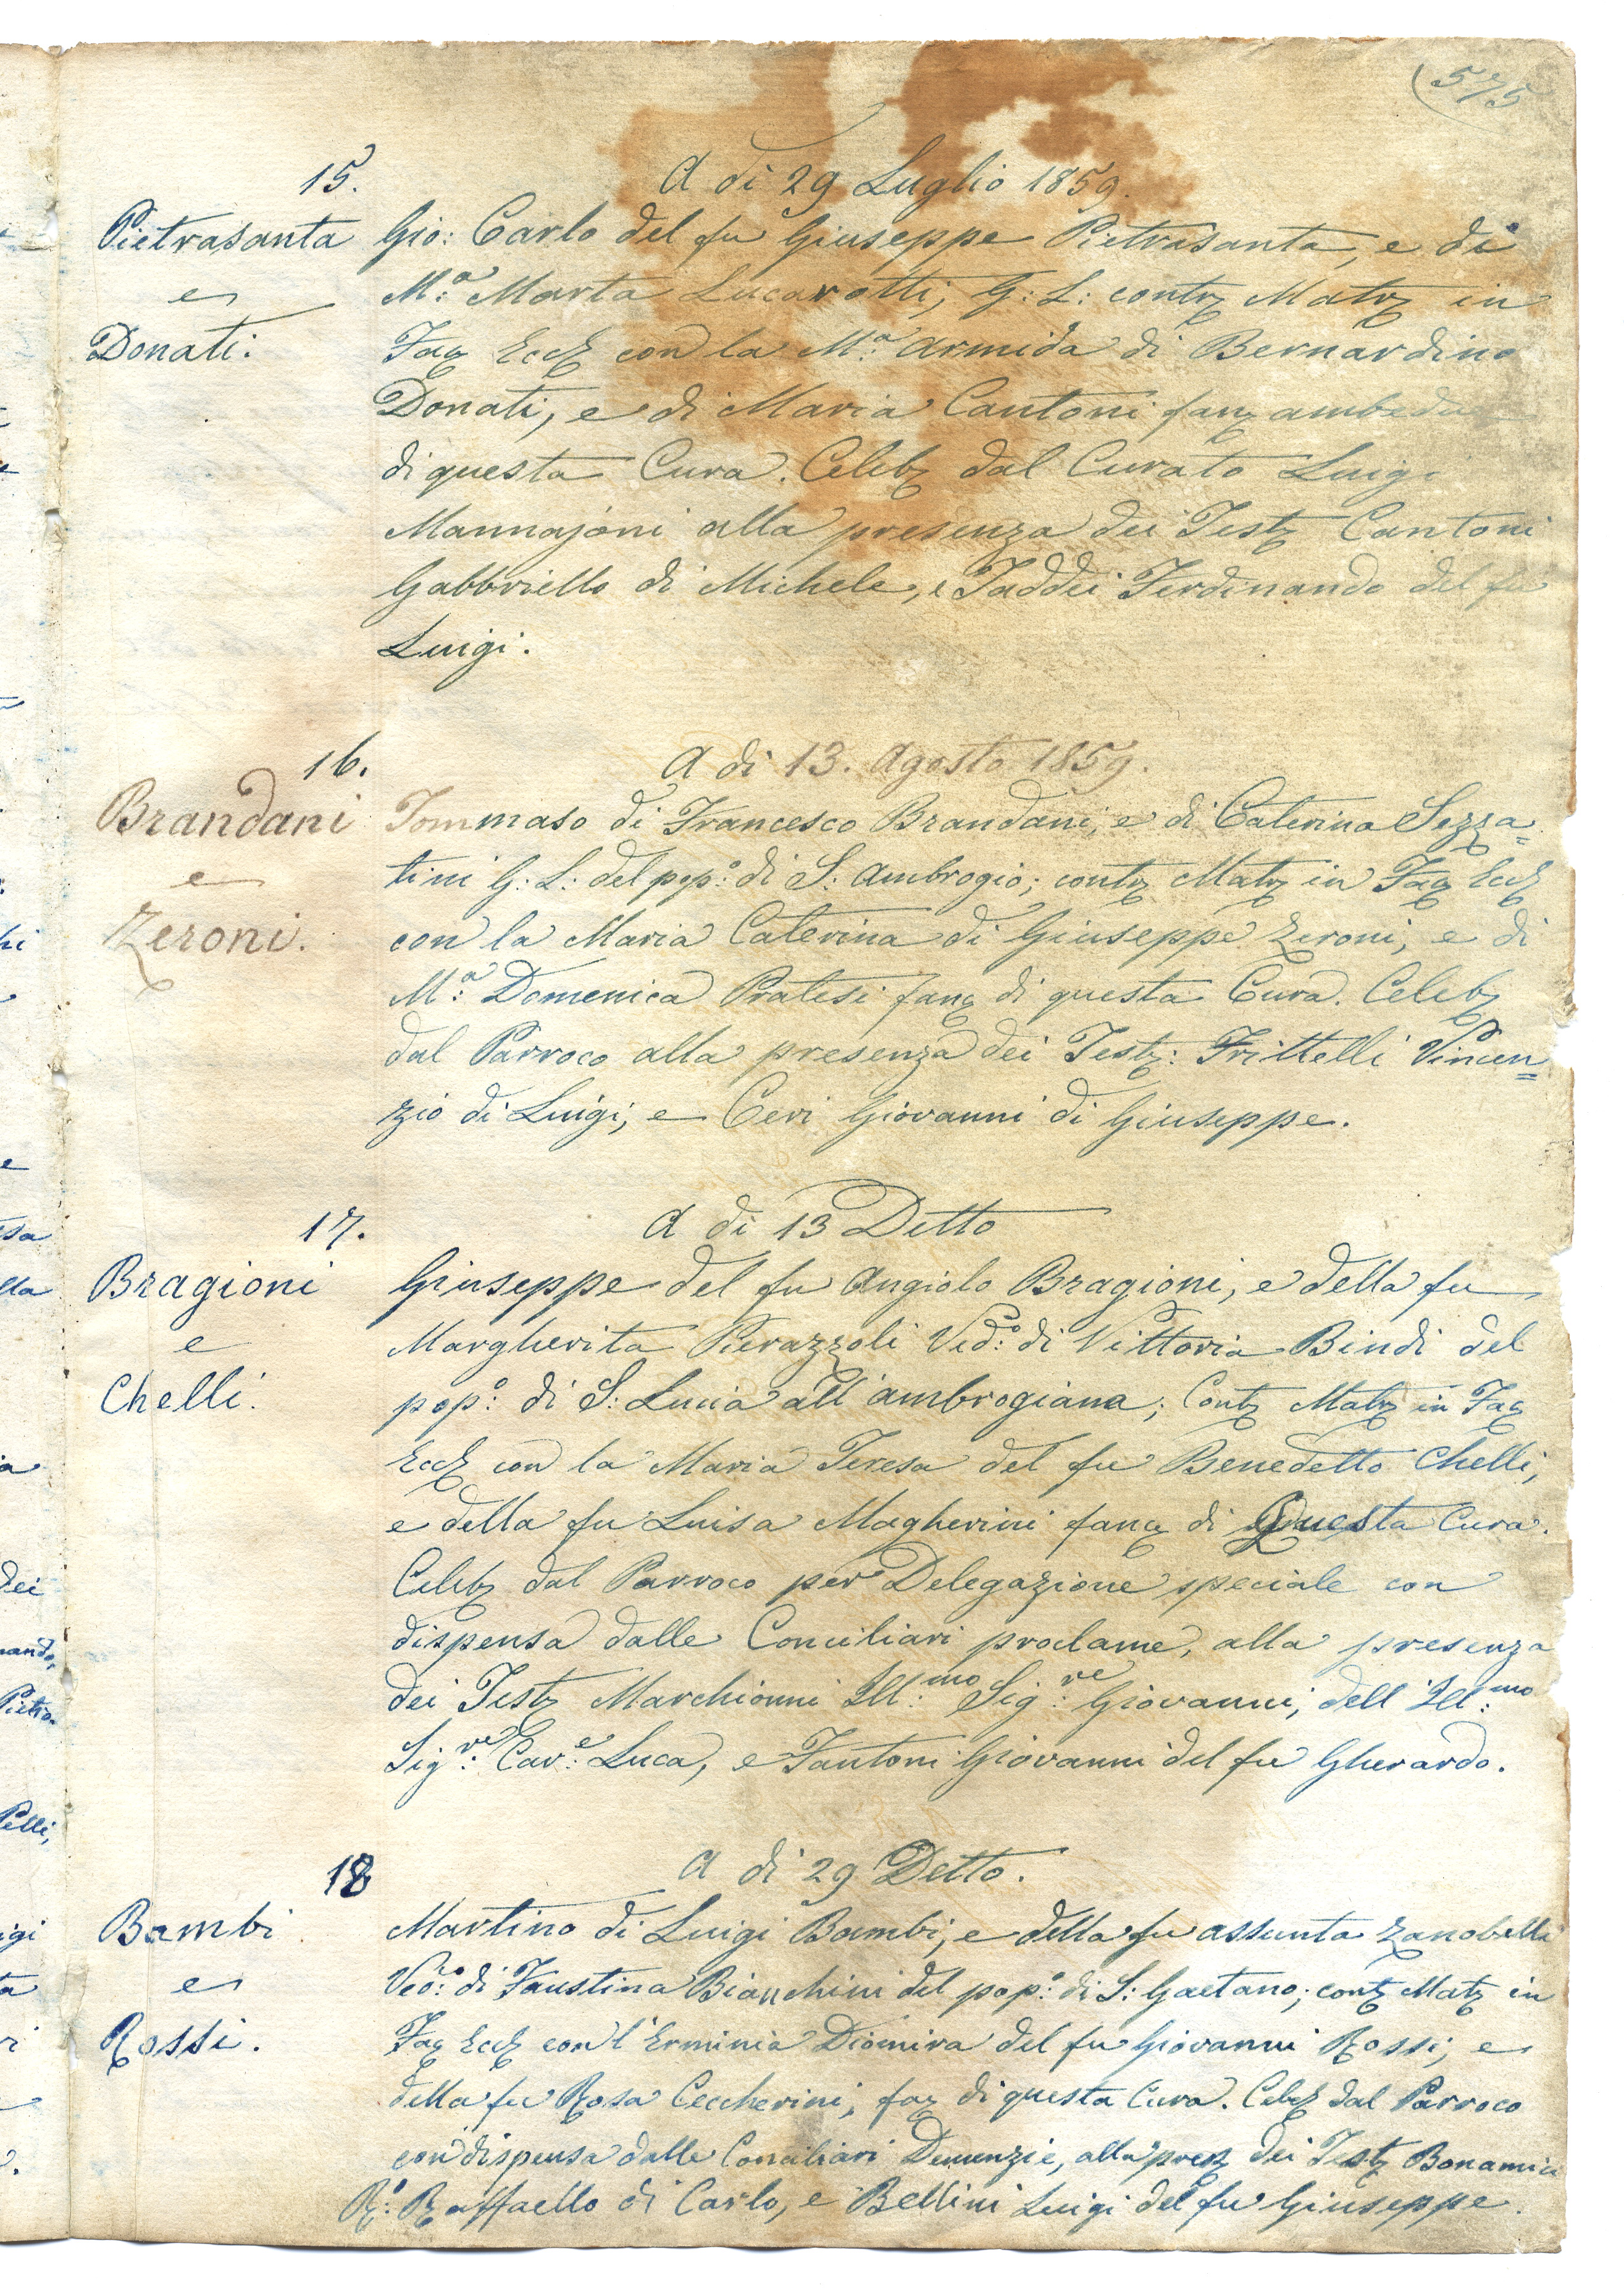 575
15. A dì 29 Luglio 1859.
Pietrasanta Gio: Carlo del fu Giuseppe Pietrasanta, e di
e M:a Marta Lucarotti, G: L: contz Matz in
Donati: Faz Eccz con la M:a Armida di Bernardino
Donati, e di Maria Cantoni fanz ambedue
di questa Cura. Celebz dal Curato Luigi
Mannajoni alla presenza dei Testz Cantoni
Gabbriello di Michele, e Taddei Ferdinando del fu
Luigi.
16. A dì 13. Agosto 1859.
Brandani Tommaso di Francesco Brandani, e di Caterina Sezza=
e tini G: L: del pop:o di S: Ambrogio; contz Matz in Faz Eccz
Zeroni. con la Maria Caterina di Giuseppe Zeroni, e di
M:a Domenica Pratesi fanz di questa Cura. Celebz
dal Parroco alla presenza dei Testz: Frittelli Vincen=
zio di Luigi, e Ceri Giovanni di Giuseppe.
17. A dì 13 Detto
Bragioni Giuseppe del fu Angiolo Bragioni, e della fu
e Margherita Pierazzoli Ved:o di Vittoria Bindi del
Chelli. pop:o di S: Lucia all'ambrogiana; Contz Matz in Faz
Eccz con la Maria Teresa del fu Benedetto Chelli,
e della fu Luisa Magherini fanz di Questa Cura.
Celebz dal Parroco per Delegazione speciale con
dispensa dalle Conciliari proclame, alla presenza
dei Testz Marchionni Ill:mo Sig:re Giovanni, dell'Ill:mo
Sig:re Cav:e Luca, e Fantoni Giovanni del fu Gherardo.
18 A dì 29 Detto.
Bambi Martino di Luigi Bambi, e della fu Assunta Zanobetti
e Ved:o di Faustina Bianchini del pop:o di S: Gaetano; contz Matz in
Rossi. Faz Eccz con l'Erminia Diomira del fu Giovanni Rossi, e
della fu Rosa Ceccherini, faz di questa Cura. Celebz dal Parroco
con dispensa dalle Conciliari Denunzie, alla presz dei Testz Bonamici
R:o Raffaello di Carlo, e Bellini Luigi del fu Giuseppe.